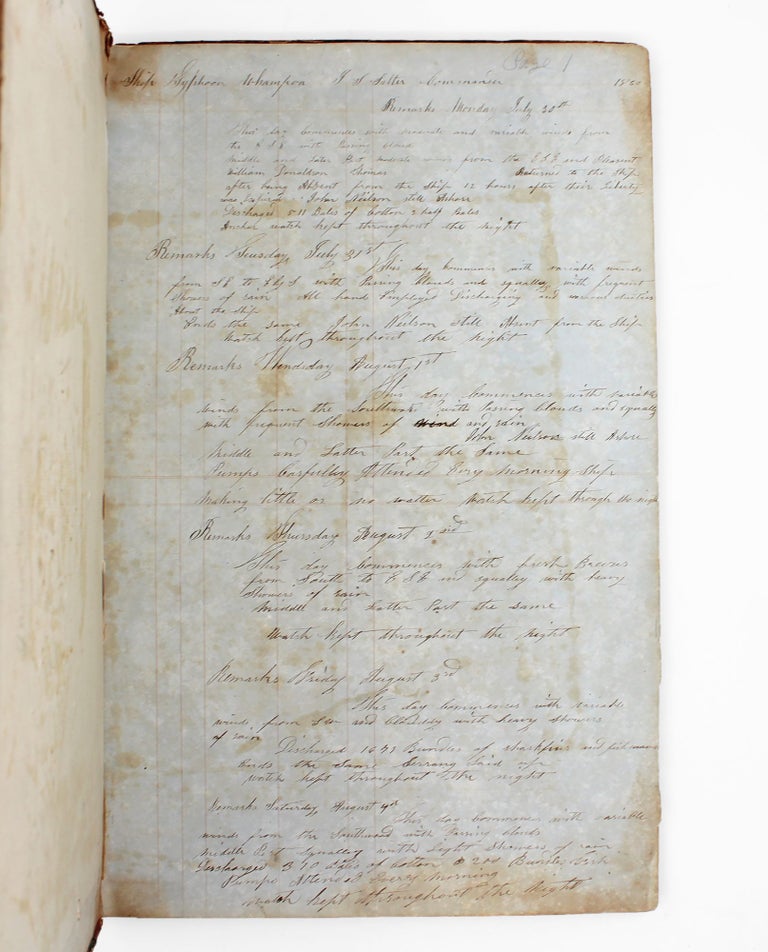 Page 1
Ship Typhoon Whampoa I S Salter Commander
Remarks Monday July 30th
This day Commences with moderate and variable winds from
the S S E with Passing Clouds
Middle and later Part moderate winds from the E S E and Pleasent
William Donaldson Thomas Returned to the Ship
after being Absent from the Ship 12 hours after their Liberty
was Expired John Neilson still Ashore
Discharged 511 Bales of Cotton 2 half Bales
Anchor watch kept throughout the night
Remarks Tuesday July 31st
This day Commences with variable winds
from S E to with Passing Clouds and squally with frequent
Showers of rain All hand Employed Discharging and various duties
About the Ship
Ends the same John Neilson still Absent from the Ship
Watch kept throughout the night
Remarks Wendsday August 1st
This day Commences with variable
winds from the Southward with Passing clouds and squally
with frequent Showers of wind and rain
John Neilson still Ashore
Middle and Latter Part the Same
Pumps Carfulley Attended Evry Morning Ship
Making little or no watter Watch kept through the night
Remarks Thursday August 2nd
This day Commences with fresh Breezes
from South to E S E and squalley with heavy
Showers of rain
Middle and Latter Part the same
Watch kept throughout the night
Remarks Friday August 3rd
This day Commences with variable
winds from S W and Clowddy with heavy showers
of rain
Discharged Bundles of sharkfins and fish maws
Ends the same
watch kept throughout the night
Remarks Saturday August 4th
This day Commences with variable
winds from the Southward with Passing clouds
Middle Part Squalley with Light Showers of rain
Discharged Bales of Cotton & 200 Bundles
Pumps Attended Every Morning
Watch kept throughout the Night